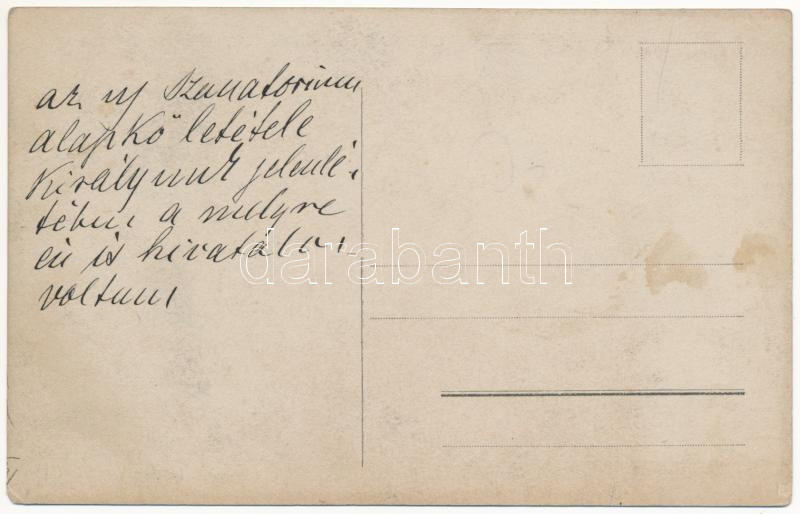 az uj szanatorium
alapkő letétele
királyunk jelenlé-
tében a melyre
én is hivatalo-
voltam
darabanth